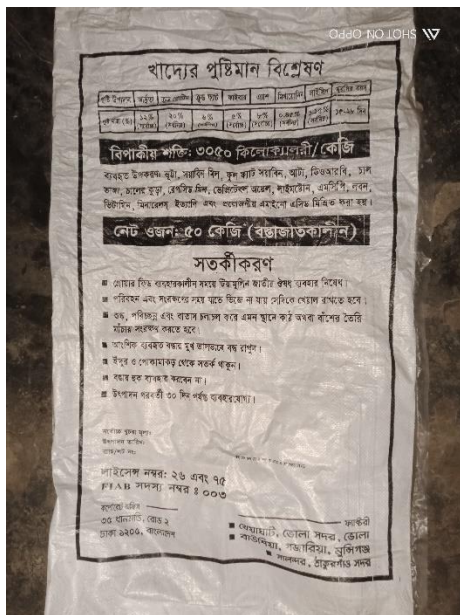 SHOT ON OPPO
খাদ্যের পুষ্টিমান বিশ্লেষণ
পুষ্টি উপাদান আর্দ্রতা ক্রুড প্রোটিন ক্রুড ফ্যাট ফাইবার এ্যাশ মিথিওনিন লাইসিন
১২% ২০% ৬% ৫% ৮%
বিপাকীয় শক্তি: ৩০৫০ কিলোক্যালরী/কেজি
ব্যবহৃত উপকরণ: ভুট্টা, সয়াবিন মিল, ফুল ফ্যাট সয়াবিন, আটা, ডিওআরবি, চাল
ভাঙ্গা, চালের কুড়া, রেপসিড মিল, ভেজিটেবল অয়েল, লাইমষ্টোন, এমসিপি, লবন,
ভিটামিন, মিনারেলস্ ইত্যাদি এবং প্রয়োজনীয় এমাইনো এসিড মিশ্রিত করা হয়।
নেট ওজন: ৫০ কেজি (বস্তাজাতকালীন)
সতর্কীকরণ
■ গ্রোয়ার ফিড ব্যবহারকালীন সময়ে জাতীয় ঔষধ ব্যবহার নিষেধ।
■ পরিবহন এবং সংরক্ষণের সময় যাতে ভিজে না যায় সেদিকে খেয়াল রাখতে হবে।
■ শুষ্ক, পরিচ্ছন্ন এবং বাতাস চলাচল করে এমন স্থানে কাঠ অথবা বাঁশের তৈরি
মাঁচায় সংরক্ষণ করতে হবে।
■ আংশিক ব্যবহৃত বস্তার মুখ ভালভাবে বন্ধ রাখুন।
■ ইঁদুর ও পোকামাকড় থেকে সতর্ক থাকুন।
■ বস্তায় হুক ব্যবহার করবেন না।
■ উৎপাদন পরবর্তী ৩০ দিন পর্যন্ত ব্যবহারযোগ্য।
সর্বোচ্চ খুচরা মূল্য:
উৎপাদন তারিখ:
ব্যাচ/লট নং:
লাইসেন্স নম্বর: ২৬ এবং ৭৫
FIAB সদস্য নম্বর : ০০৩
কর্পোরেট অফিস
৩৫ ধানমন্ডি, রোড ২
ঢাকা ১২০৫, বাংলাদেশ
ফ্যাক্টরী
■ খেয়াঘাট, ভোলা সদর, ভোলা
■ বাউশিয়া, গজারিয়া, মুন্সিগঞ্জ
■ সালন্দর, ঠাকুরগাঁও সদর